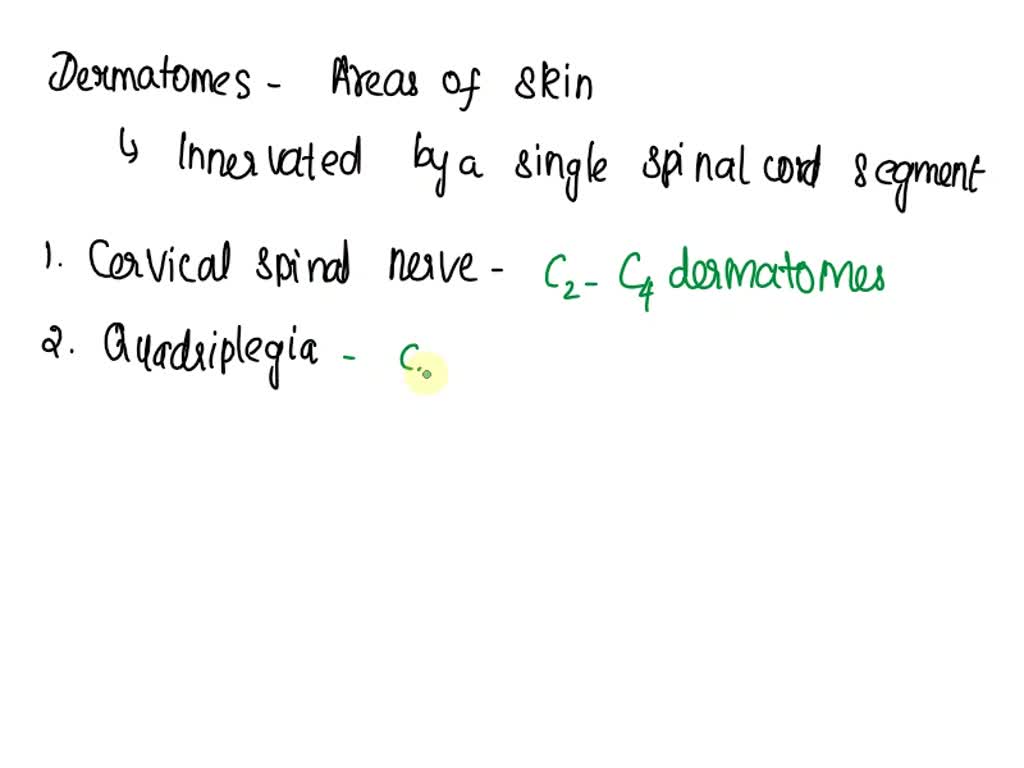 Dermatomes - Areas of skin
↳ Innervated by a single spinal cord segment
1. Cervical spinal nerve - C2 - C4 dermatomes
2. Quadriplegia - C